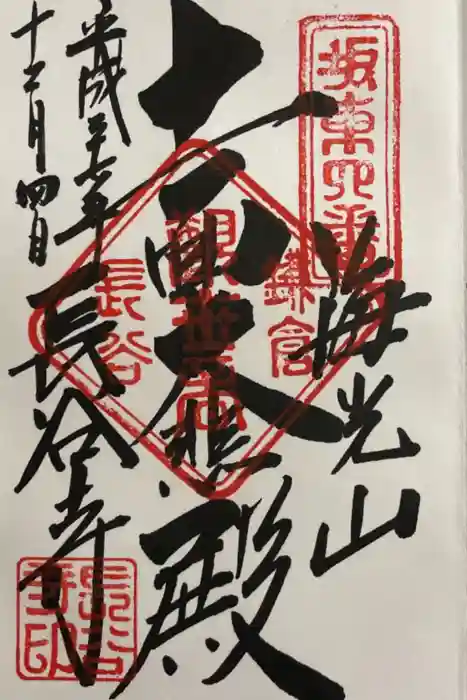 坂東四番
海光山
十一面大悲殿
鎌倉
観世音
長谷
長谷寺
平成二十六年
十二月四日
長谷寺印